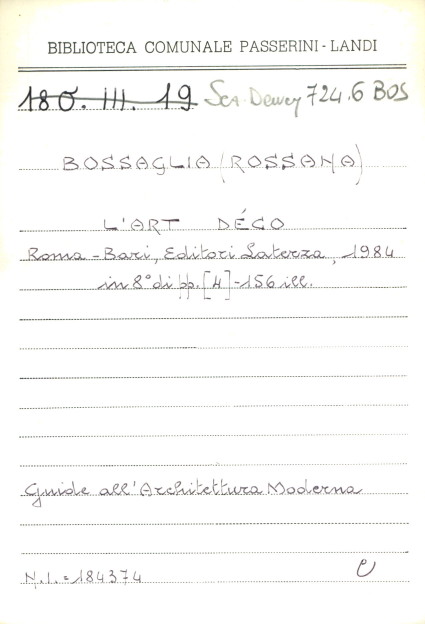 BIBLIOTECA COMUNALE PASSERINI - LANDI
180. III. 19 Sca Dewey 724.6 BOS
BOSSAGLIA (ROSSANA)
L'ART DÉCO
Roma - Bari, Editori Laterza, 1984
in 8° di pp. [4] - 156 ill.
Guide all'Architettura Moderna
N.I. = 184374